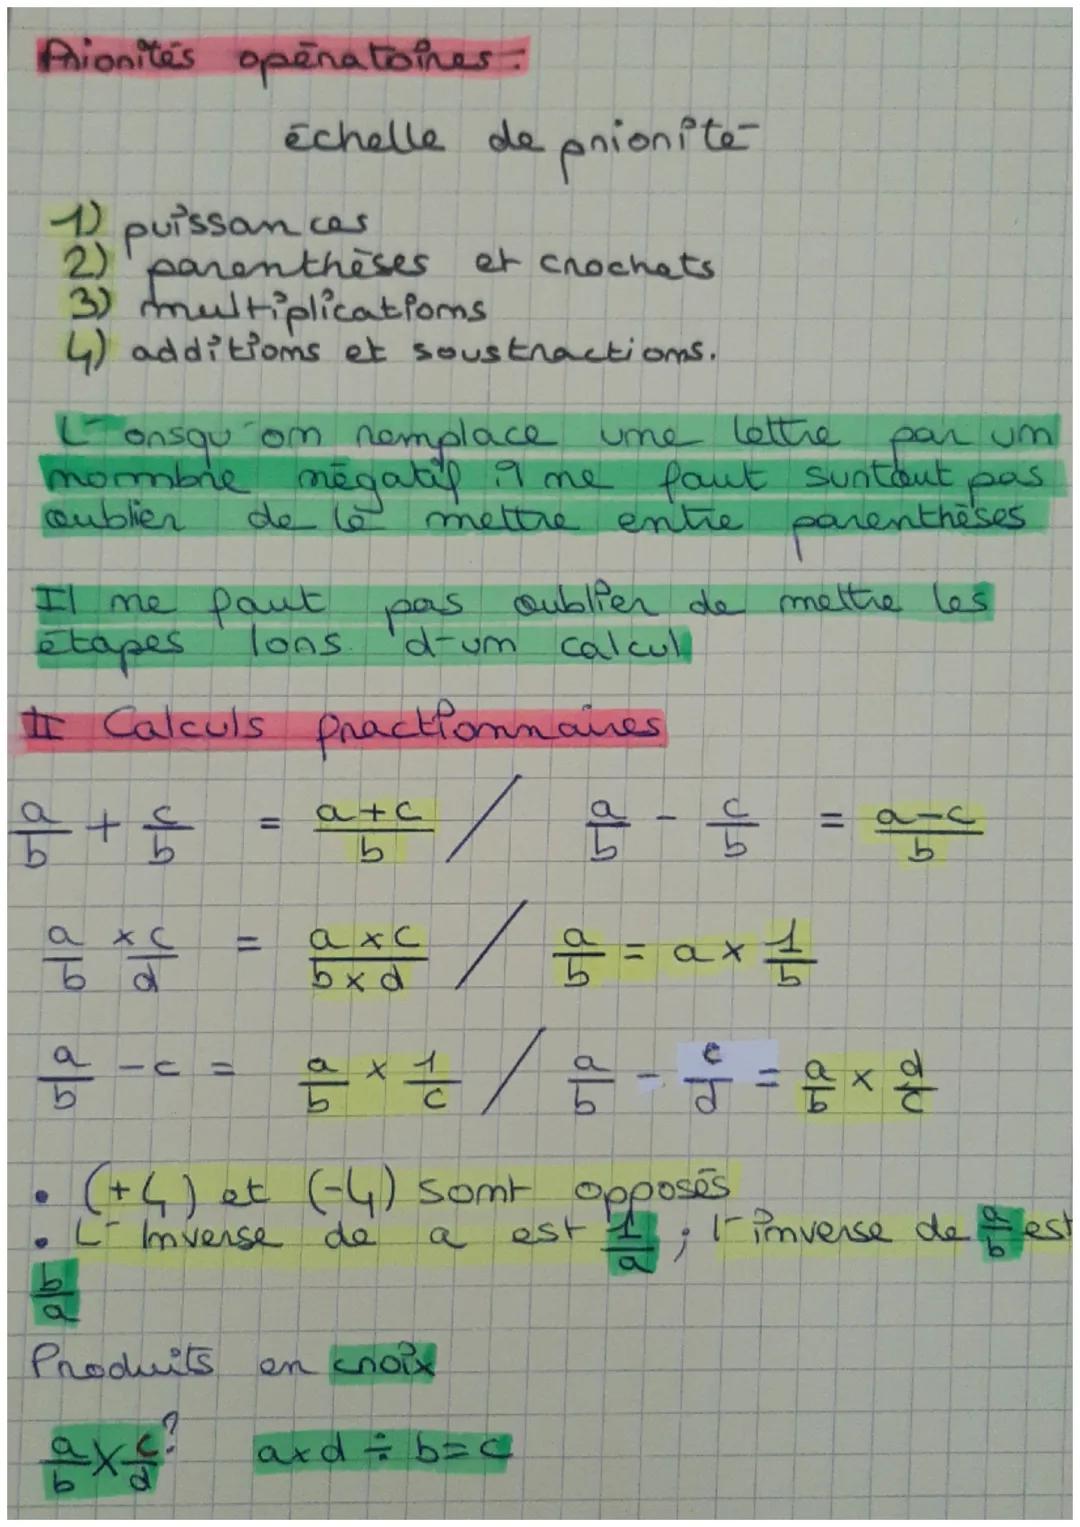 Priorités opératoires:
échelle de priorité
1) puissances
2) parenthèses et crochets
3) multiplications
4) additions et soustractions.
Lorsqu'on remplace une lettre par un
nombre négatif il ne faut surtout pas
oublier de le mettre entre parenthèses
Il ne faut pas oublier de mettre les
étapes lors d'un calcul
II Calculs fractionnaires
a/b + c/b = a+c/b / a/b - c/b = a-c/b
a/b × c/d = a×c/b×d / a/b = a × 1/b
a/b - c = a/b × 1/c / a/b - c/d = a/b × d/c
• (+4) et (-4) sont opposés
• L'inverse de a est 1/a ; l'inverse de a/b est
b/a
Produits en croix
a/b × c?/d a×d ÷ b = c